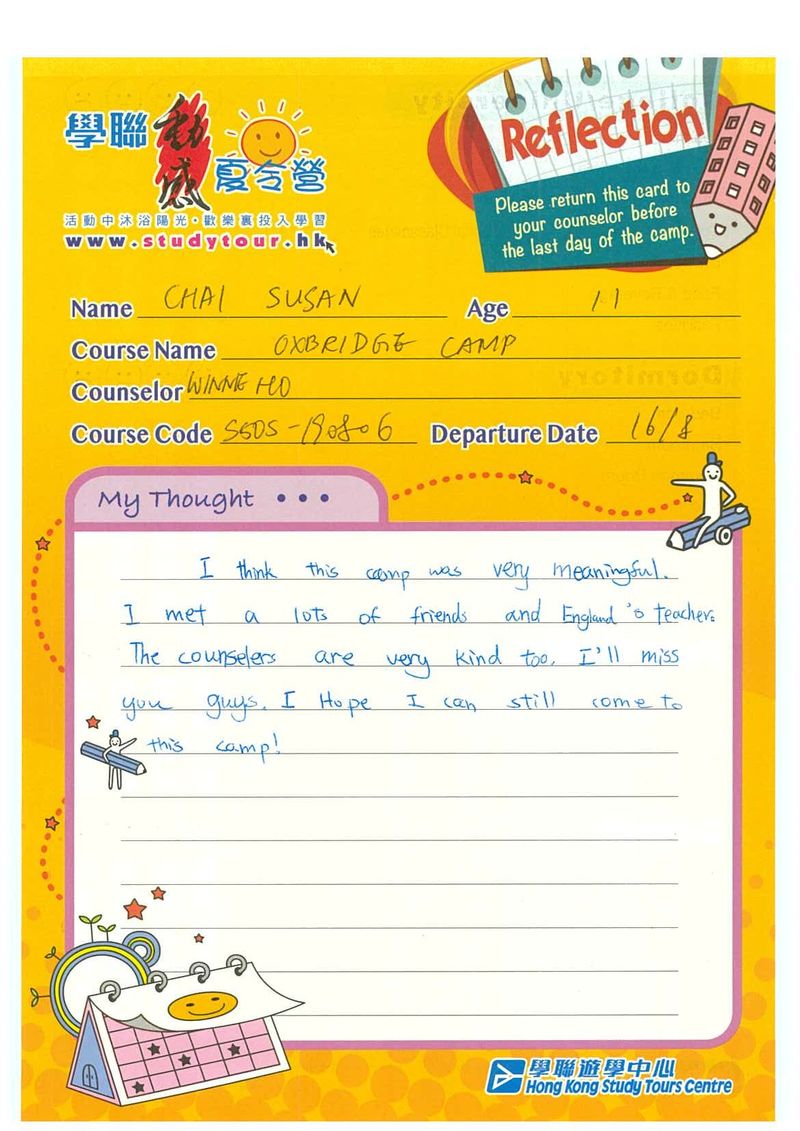 學聯 動感 夏令營
活動中沐浴陽光・歡樂裏投入學習
www.studytour.hk
Reflection
Please return this card to
your counselor before
the last day of the camp.
Name CHAI SUSAN Age 11
Course Name OXBRIDGE CAMP
Counselor WINNIE HO
Course Code SEOS-190806 Departure Date 16/8
My Thought • • •
I think this camp was very meaningful.
I met a lots of friends and England's teacher.
The counselers are very kind too. I'll miss
you guys. I Hope I can still come to
this camp!
學聯遊學中心
Hong Kong Study Tours Centre